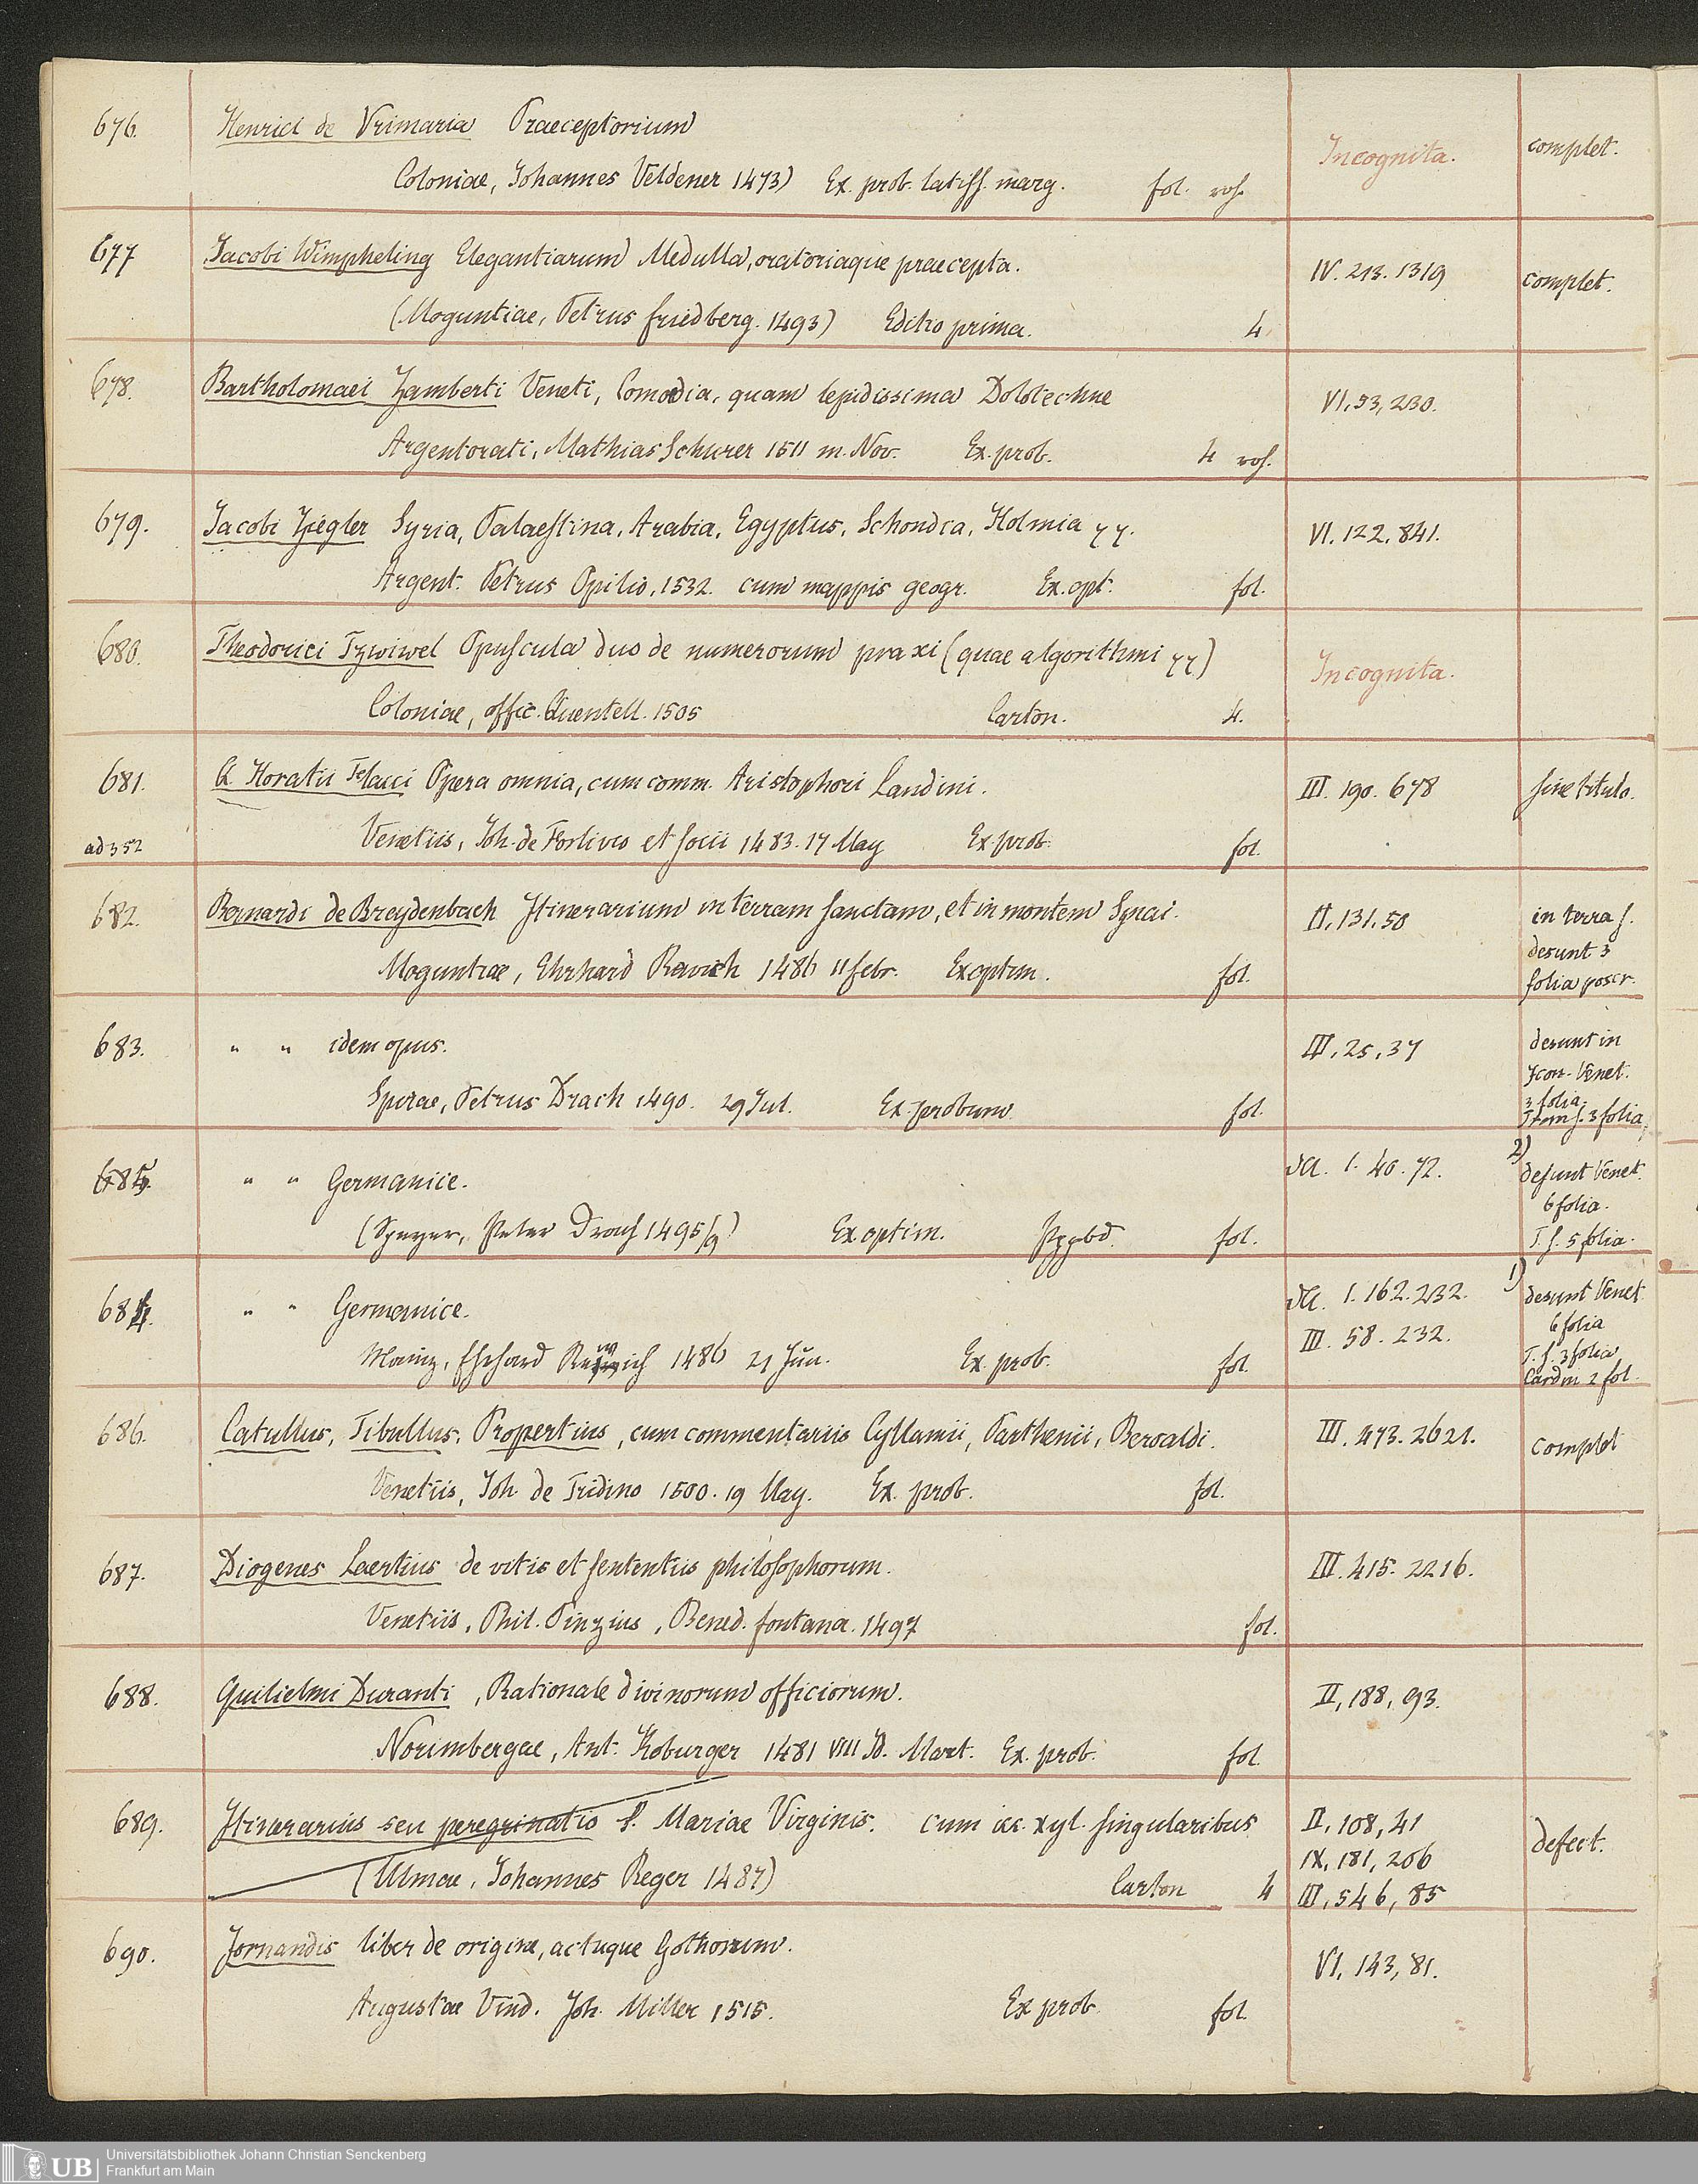 676. Henrici de Vrimaria Praeceptorium Incognita. complet.
Coloniae, Johannes Veldener 1473) Ex. prob. latiss. marg. fol. roh.
677 Jacobi Wimpheling Elegantiarum Medulla, oratoriaque praecepta. IV. 213. 1319 complet.
(Moguntiae, Petrus Friedberg. 1493) Editio prima. 4
678. Bartholomaei Zamberti Veneti, Comoedia, quam lepidissima Dolotechne VI, 53, 230.
Argentorati, Mathias Schurer 1511 m. Nov. Ex. prob. 4 roh.
679. Jacobi Ziegler Syria, Palaestina, Arabia, Egyptus, Schondia, Holmia VI. 122. 841.
Argent. Petrus Opilio, 1532. cum mappis geogr. Ex. opt. fol.
680. Theodorici Tzwiwel Opuscula duo de numerorum praxi (quae algorithmi Incognita.
Coloniae, offic. Quentell. 1505 Carton. 4.
681. Q Horatii Flacci Opera omnia, cum comm. Aristophori Landini. III. 190. 678 sine titulo.
ad 352 Venetiis, Joh. de Forlivio et socii 1483. 17 May Ex. prob. fol.
682. Bernardi de Breydenbach Itinerarium in terram sanctam, et in montem Synai. II, 131, 50 in terra s.
desunt 3
Moguntiae, Ehrhard Rewich 1486 11 febr. Ex optim. fol. folia poscr.
683. " " idem opus. III, 25, 37 desunt in
Icon. Venet.
Spirae, Petrus Drach 1490. 29 Jul. Ex. probum fol. 3 folia.
Item s. 3 folia
685. " " Germanice. 1. 40. 72. 2) desunt Venet.
6 folia.
(Speyer, Peter Drach 1495/9) Ex optim. Ppbd. fol. T. s. 5 folia.
684. " " Germanice. 1. 162. 232. 1) desunt Venet
6 folia
Mainz, Ehrhard Rewich 1486 21 Jun. Ex. prob. fol. III. 58. 232. T. s. 3 folia
2 fol.
686. Catullus, Tibullus, Propertius, cum commentariis Cyllamii, Parthenii, Beroaldi. III. 473. 2621. complet
Venetiis, Joh. de Tridino 1500. 19 May. Ex. prob. fol.
687. Diogenes Laertius de vitis et sententiis philosophorum. III. 415. 2216.
Venetiis, Phil. Pinzius, Bened. Fontana. 1497 fol.
688. Guilielmi Duranti, Rationale divinorum officiorum. II, 188, 93.
Norimbergae, Ant. Koburger 1481 VIII Id. Mart. Ex. prob. fol.
689. Itinerarius seu peregrinatio S. Mariae Virginis. cum icc. xyl. singularibus II, 108, 41 defect.
IX, 181, 206
(Ulmae, Johannes Reger 1487) Carton 4 III, 546, 85
690. Jornandis liber de origine, actuque Gothorum. VI, 143, 81.
Augustae Vind. Joh. Miller 1515. Ex prob. fol.
UB Universitätsbibliothek Johann Christian Senckenberg
Frankfurt am Main